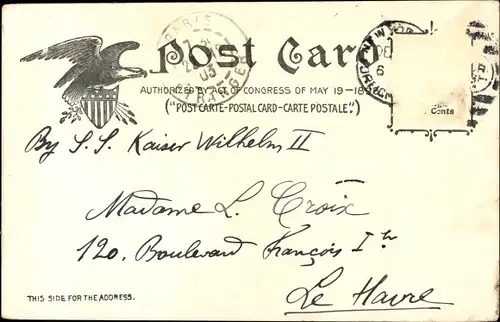 PARIS
05
ETRANGER
NEW YOR
DE
6
Post Card
AUTHORIZED BY ACT OF CONGRESS OF MAY 19-18
("POST CARTE-POSTAL CARD-CARTE POSTALE".)
Cents
By S.S. Kaiser Wilhelm II
Madame L. Croix
120. Boulevard François Ier
Le Havre
THIS SIDE FOR THE ADDRESS.